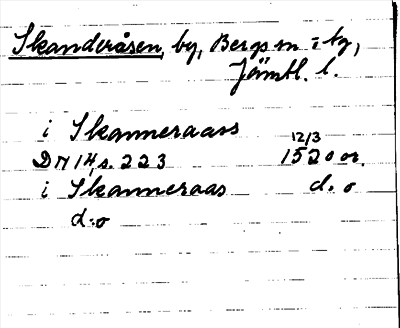 Skanderåsen, by, Bergs sn i tg,
Jämtl. l.
i Skanneraass
12/3
DN 14, s. 223 1520 or.
i Skanneraas d:o
d:o